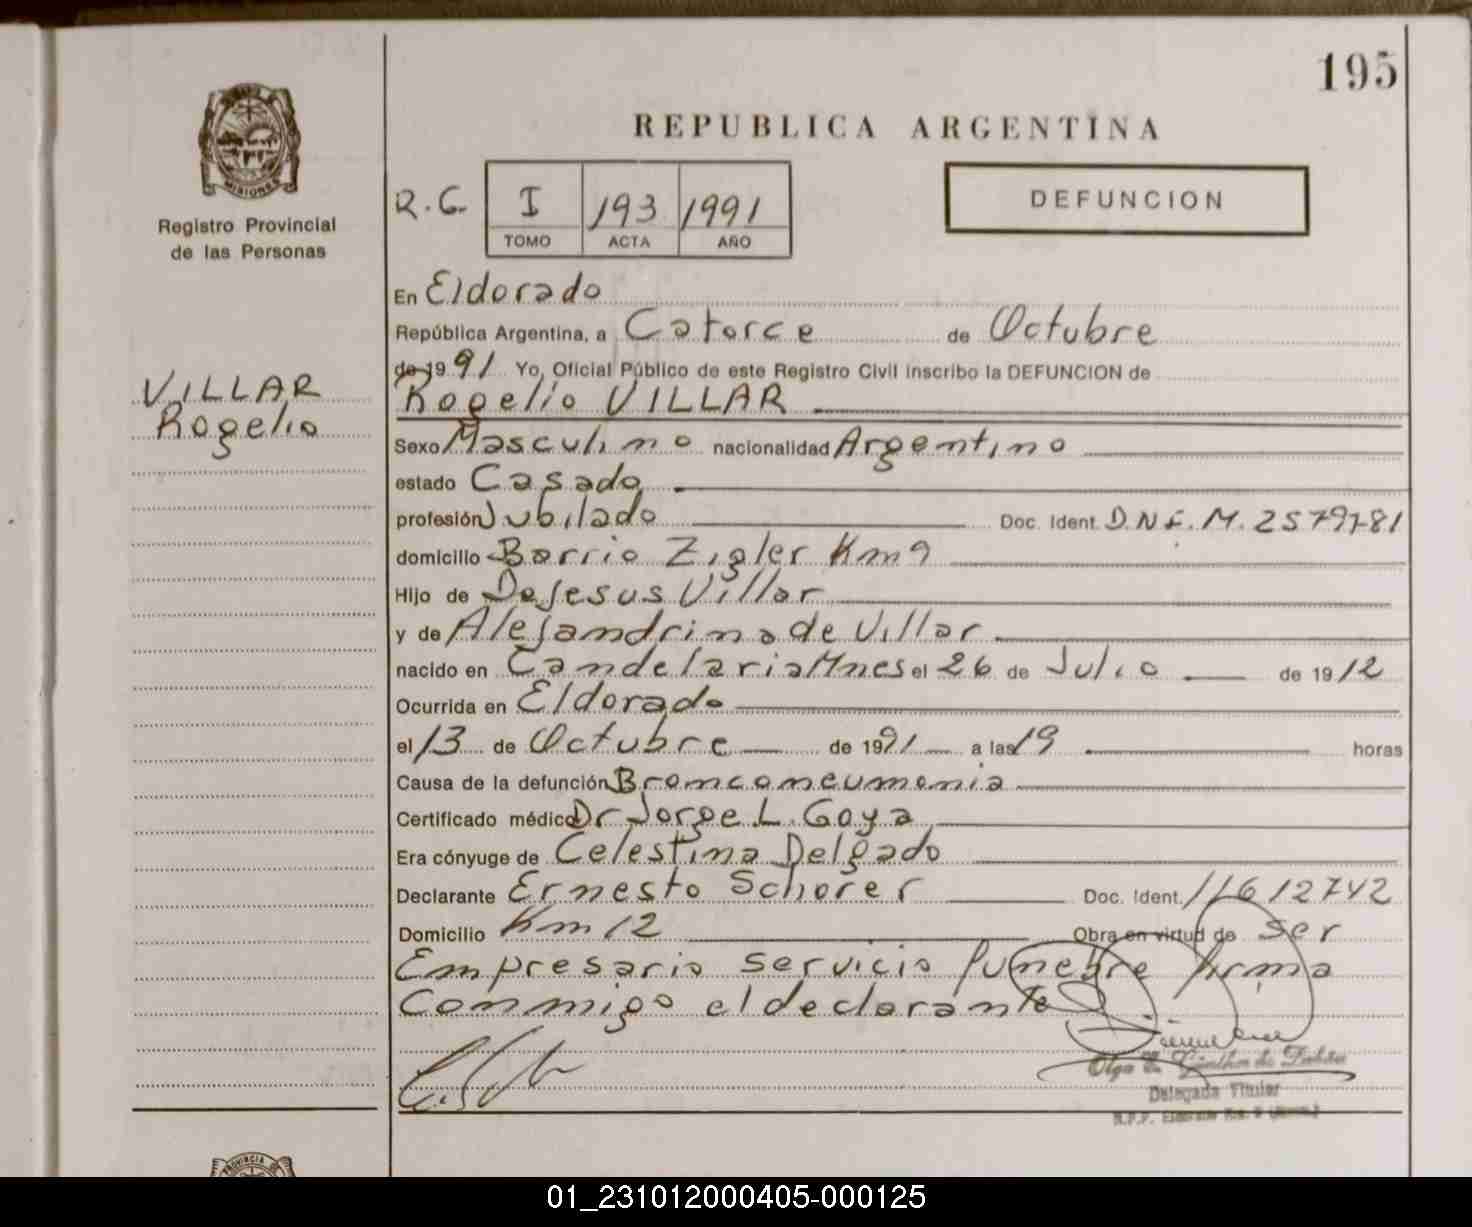 195
REPUBLICA ARGENTINA
MISIONES
Registro Provincial
de las Personas
R.G. I 193 1991
TOMO ACTA AÑO
DEFUNCION
VILLAR
Rogelio
En Eldorado
República Argentina, a Catorce de Octubre
de 19 91 Yo, Oficial Público de este Registro Civil inscribo la DEFUNCION de
Rogelio VILLAR
Sexo Masculino nacionalidad Argentino
estado Casado
profesión Jubilado Doc. Ident. D.N.I. M. 2579781
domicilio Barrio Zigler Km 9
Hijo de DeJesus Villar
y de Alejandrina de Villar
nacido en Candelaria Mnes el 26 de Julio de 19 12
Ocurrida en Eldorado
el 13 de Octubre de 19 91 a las 19 horas
Causa de la defunción Bronconeumonia
Certificado médico Dr Jorge L. Goya
Era cónyuge de Celestina Delgado
Declarante Ernesto Schorer Doc. Ident. 11612742
Domicilio Km 12 Obra en virtud de ser
Empresario Servicio Funebre firma
Conmigo el declarante
Olga
Delegada Titular
R.P.P. Eldorado
PROVINCIA DE
01_231012000405-000125